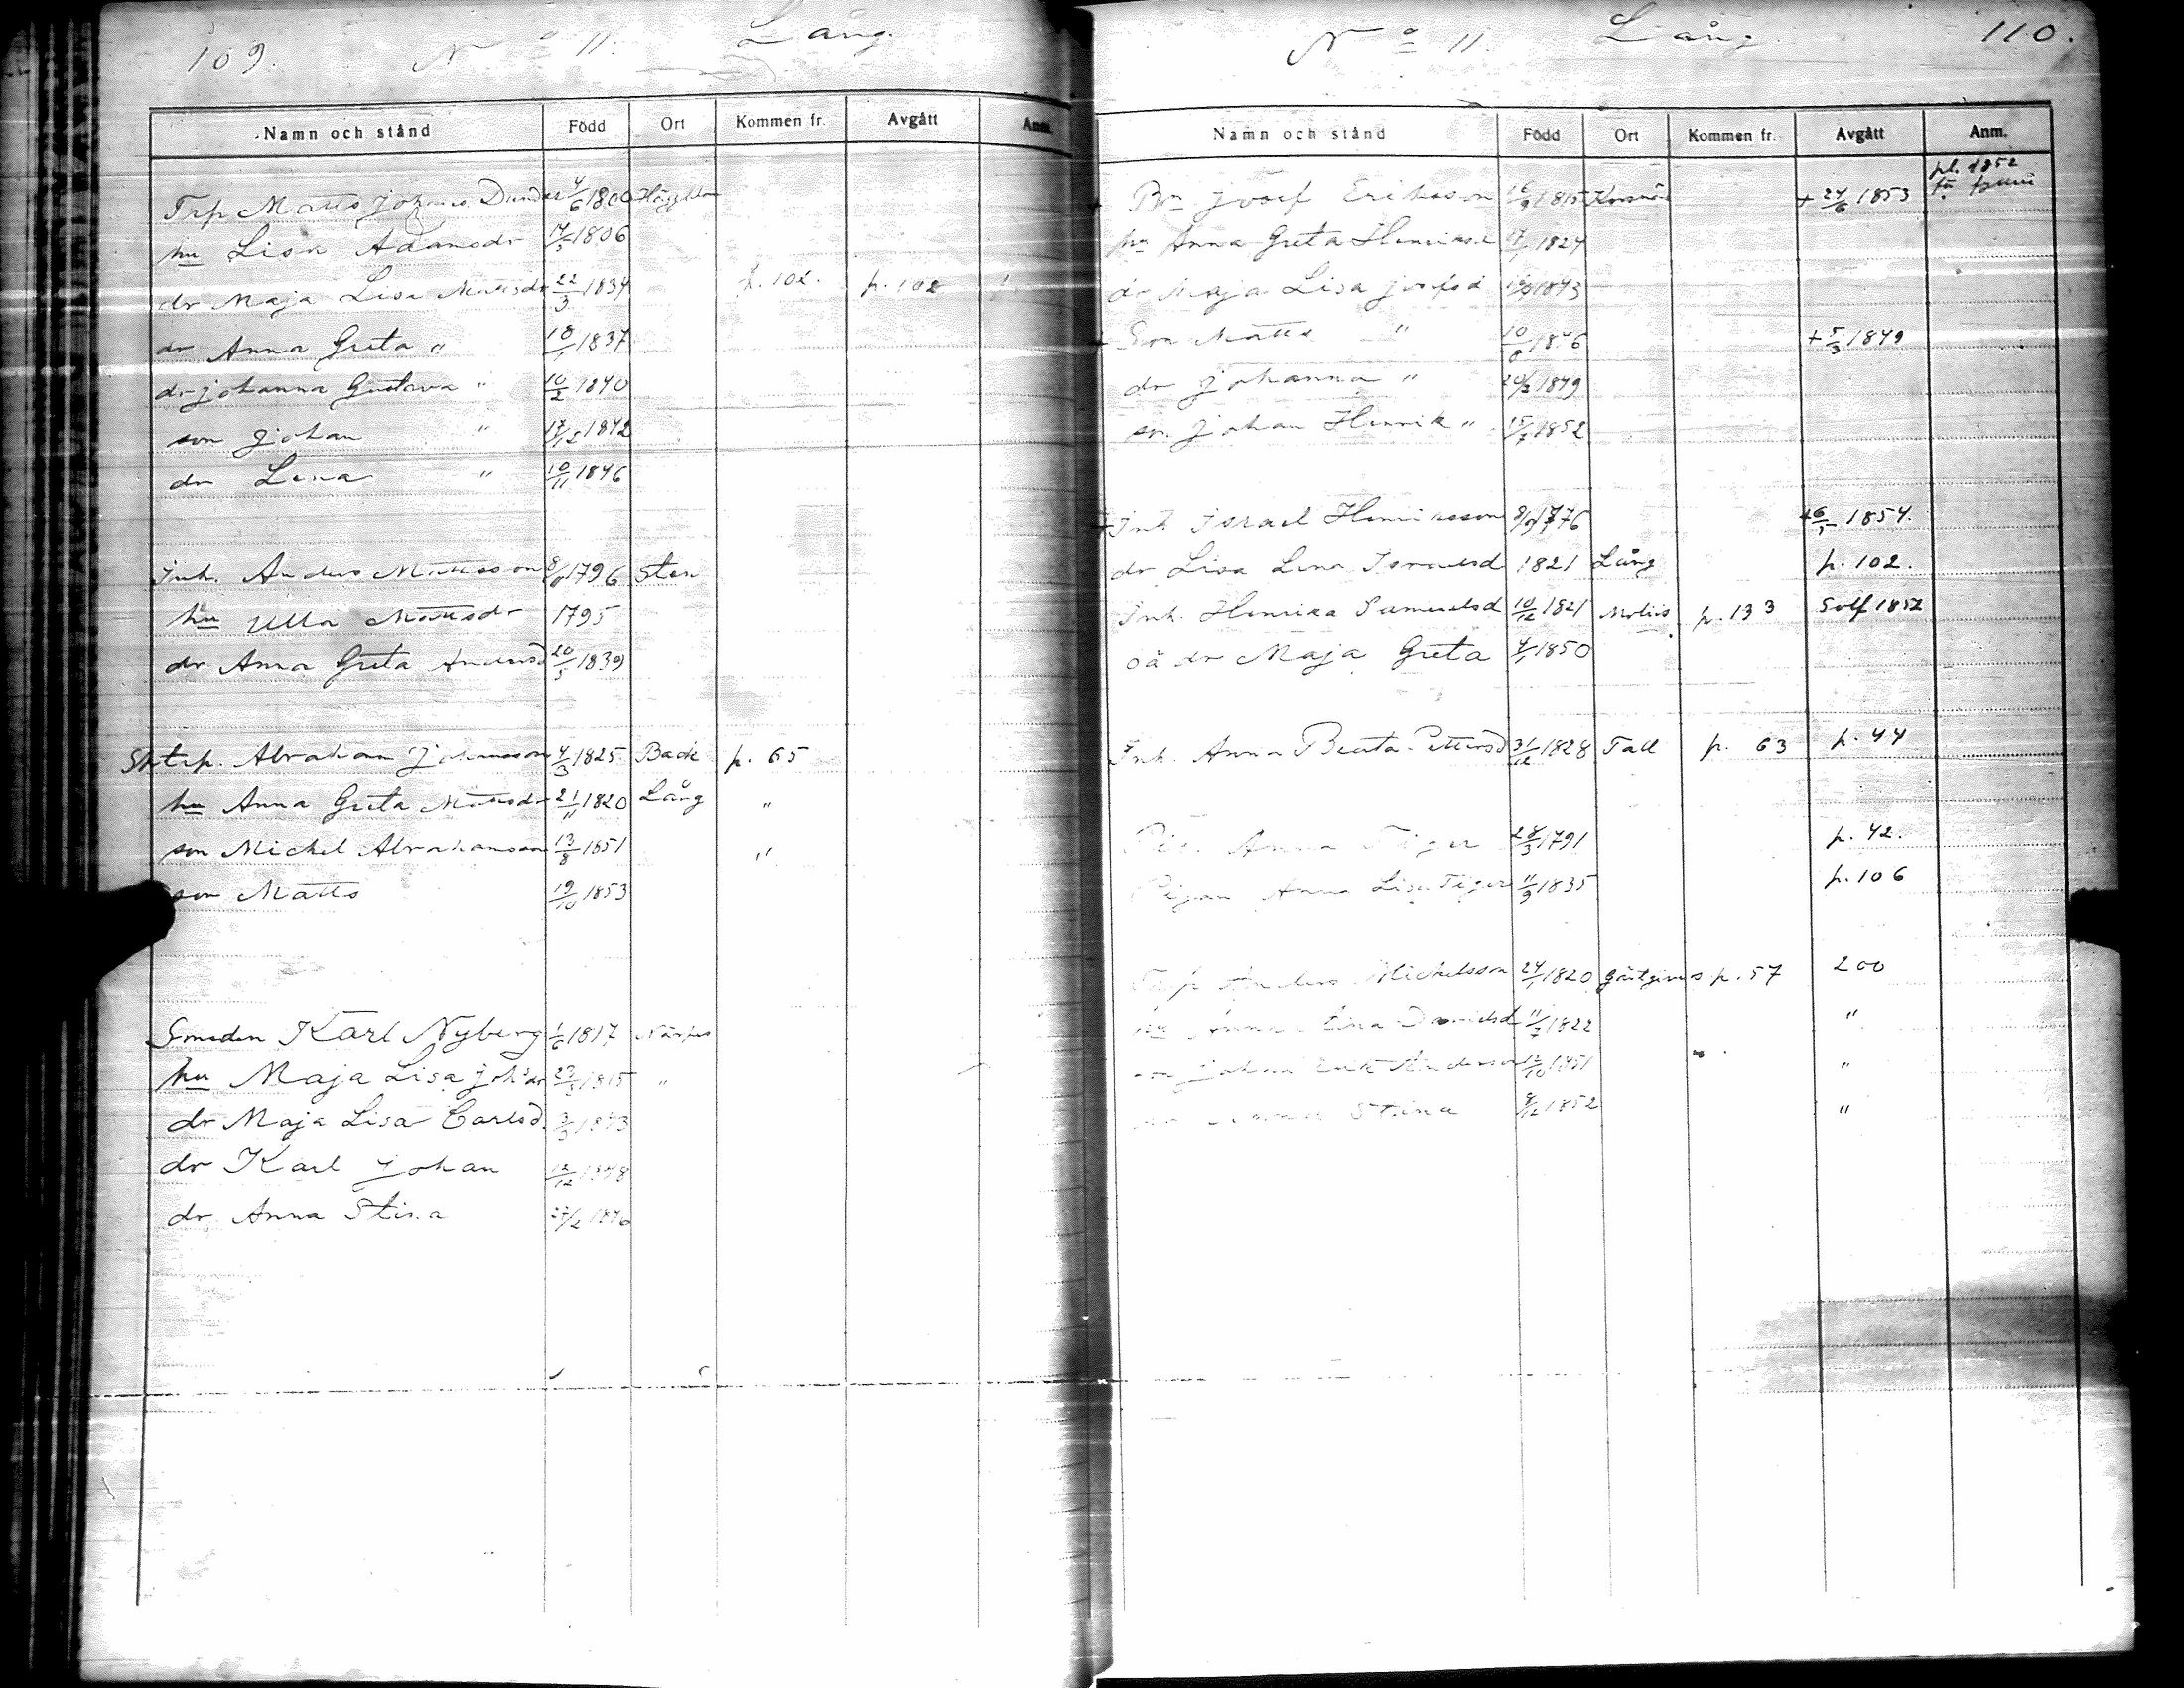 109. No 11. Lång.
Namn och stånd Född Ort Kommen fr. Avgått Anm.
Trp Matts Johans. Dunder 4/6 1800
hu Lisa Adamsdr 1806
dr Maja Lisa Mattsdr 22/3 1834 p. 102. p. 102
dr Anna Greta " 1837
dr Johanna Gustava " 10/2 1840
son Johan " 17/12 1842
dr Lena " 10/11 1846
Inh. Anders Mattsson 1796 Sten
hu Ulla Mattsdr 1795
dr Anna Greta Andersd 20/5 1839
Sktrp. Abraham Johansson 4/3 1825 Back p. 65
hu Anna Greta Mattsdr 21/11 1820 Lång "
son Mickel Abrahamsson 13/8 1851 "
son Matts 19/10 1853
Smeden Karl Nyberg 1/6 1817 Närpes
hu Maja Lisa Johsdr 1815 "
dr Maja Lisa Carlsd.
dr Karl Johan 12/12 1848
dr Anna Stina
No 11. Lång 110.
Namn och stånd Född Ort Kommen fr. Avgått Anm.
Bn Josef Eriksson 1815 Korsnäs + 24/6 1853 pl. 1852
hu Anna Greta Henriksd 1824
dr Maja Lisa Josefsd 1843
Son Matts " 10/8 1846 + 5/3 1849
dr Johanna " 20/3 1849
sn. Johan Henrik " 1852
Inh Israel Henriksson 1776 1854.
dr Lisa Lena Israelsd 1821 Lång p. 102.
Inh. Henrika Samuelsd 10/12 1821 Molis p. 133 Solf 1852
oä dr Maja Greta 4/1 1850
Inh. Anna Beata Pettersd 31/12 1828 Tall p. 63 p. 44
Anna Tiger 28/3 1791 p. 42.
Pigan Anna Lisa Tiger 11/9 1835 p. 106
Anders Mickelsson 24/1 1820 Gästgivas p. 57 200
hu Anna Lisa Danielsd 1822 "
Johan Erik Andersson 1851 "
Stina 8/12 1852 "